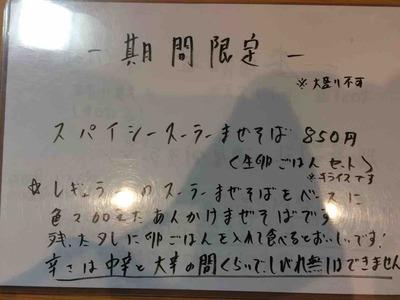 －期間限定－
※大盛り不可
スパイシースーラーまぜそば 850円
(生卵ごはんセット)
※半ライスです
☆レギュラーのスーラーまぜそばをベースに
色々加えたあんかけまぜそばです
残ったタレに卵ごはんを入れて食べるとおいしいです!
辛さは中辛と大辛の間くらいで、しびれ無しはできません